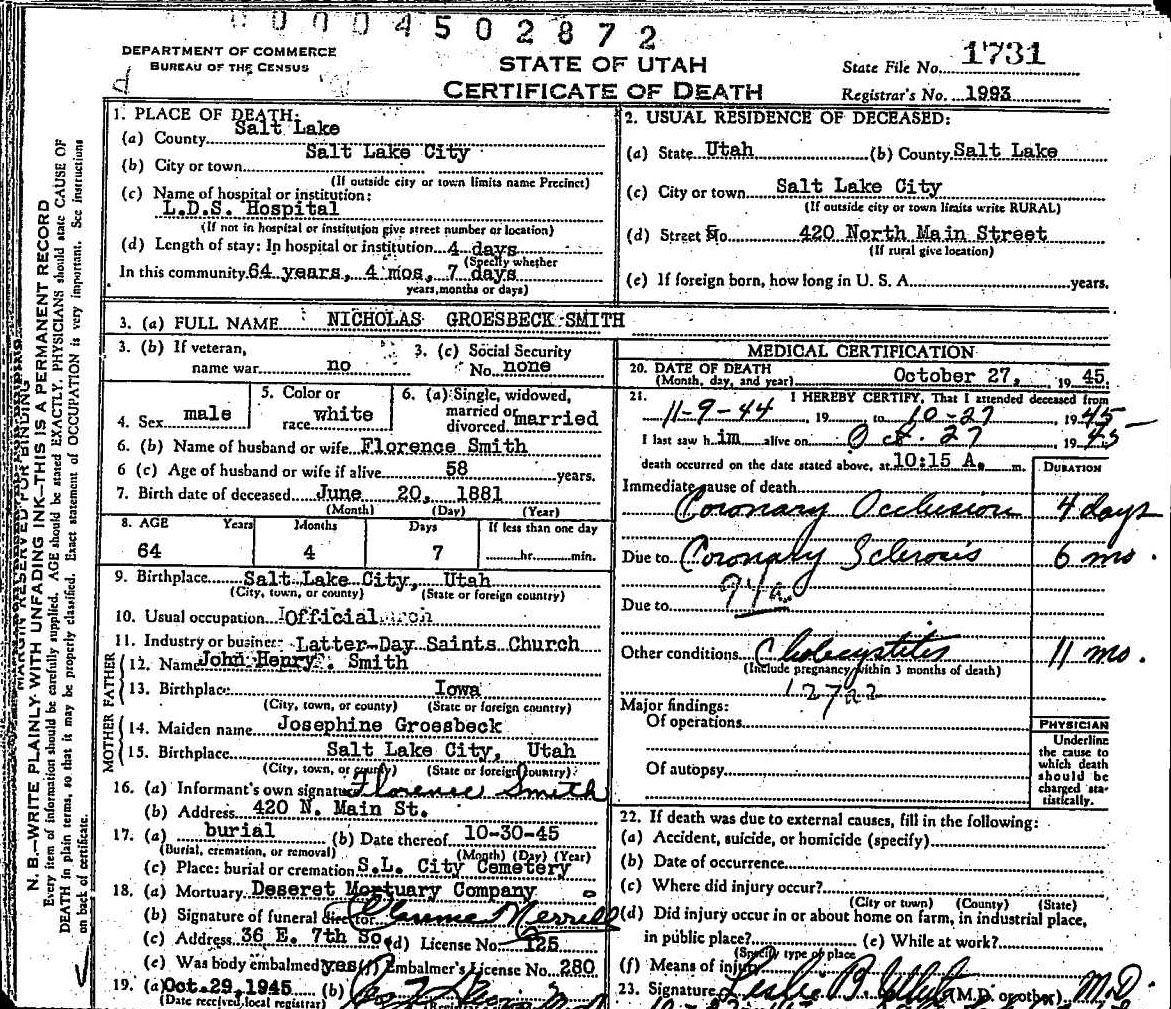 00004502872
DEPARTMENT OF COMMERCE
BUREAU OF THE CENSUS
d
STATE OF UTAH
CERTIFICATE OF DEATH
State File No. 1731
Registrar's No. 1993
MARGIN RESERVED FOR BINDING
N. B.—WRITE PLAINLY WITH UNFADING INK—THIS IS A PERMANENT RECORD
Every item of information should be carefully supplied. AGE should be stated EXACTLY. PHYSICIANS should state CAUSE OF
DEATH in plain terms, so that it may be properly classified. Exact statement of OCCUPATION is very important. See instructions
on back of certificate.
1. PLACE OF DEATH:
(a) County Salt Lake
(b) City or town Salt Lake City
(If outside city or town limits name Precinct)
(c) Name of hospital or institution:
L.D.S. Hospital
(If not in hospital or institution give street number or location)
(d) Length of stay: In hospital or institution 4 days
(Specify whether
In this community 64 years, 4 mos, 7 days
years, months or days)
2. USUAL RESIDENCE OF DECEASED:
(a) State Utah (b) County Salt Lake
(c) City or town Salt Lake City
(If outside city or town limits write RURAL)
(d) Street No. 420 North Main Street
(If rural give location)
(e) If foreign born, how long in U. S. A. years.
3. (a) FULL NAME NICHOLAS GROESBECK SMITH
3. (b) If veteran,
name war no
3. (c) Social Security
No. none
4. Sex male
5. Color or
race white
6. (a) Single, widowed,
married or
divorced married
6. (b) Name of husband or wife Florence Smith
6 (c) Age of husband or wife if alive 58 years.
7. Birth date of deceased June 20, 1881
(Month) (Day) (Year)
8. AGE Years Months Days If less than one day
64 4 7 hr. min.
9. Birthplace Salt Lake City, Utah
(City, town, or county) (State or foreign country)
10. Usual occupation Official
11. Industry or busines Latter-Day Saints Church
FATHER
12. Name John Henry Smith
13. Birthplace Iowa
(City, town, or county) (State or foreign country)
MOTHER
14. Maiden name Josephine Groesbeck
15. Birthplace Salt Lake City, Utah
(City, town, or county) (State or foreign country)
16. (a) Informant's own signature Florence Smith
(b) Address 420 N. Main St.
17. (a) burial (b) Date thereof 10-30-45
(Burial, cremation, or removal) (Month) (Day) (Year)
(c) Place: burial or cremation S.L. City Cemetery
18. (a) Mortuary Deseret Mortuary Company
(b) Signature of funeral director Merrell
(c) Address 36 E. 7th So. (d) License No. 125
(e) Was body embalmed yes (f) Embalmer's License No. 280
19. (a) Oct. 29, 1945 (b)
(Date received local registrar)
MEDICAL CERTIFICATION
20. DATE OF DEATH
(Month, day, and year) October 27, 1945.
21. I HEREBY CERTIFY, That I attended deceased from
11-9-44 19 to 10-27 1945
I last saw him alive on Oct. 27 1945
death occurred on the date stated above, at 10:15 A. m.
DURATION
Immediate cause of death
Coronary Occlusion 4 days
Due to Coronary Sclerosis 6 mo.
94a
Due to
Other conditions Cholecystites 11 mo.
(Include pregnancy within 3 months of death)
Major findings:
Of operations
Of autopsy
PHYSICIAN
Underline
the cause to
which death
should be
charged sta-
tistically.
22. If death was due to external causes, fill in the following:
(a) Accident, suicide, or homicide (specify)
(b) Date of occurrence
(c) Where did injury occur?
(City or town) (County) (State)
(d) Did injury occur in or about home on farm, in industrial place,
in public place? (e) While at work?
(Specify type of place
(f) Means of injury
23. Signature Leslie B. (M.D. or other) M.D.